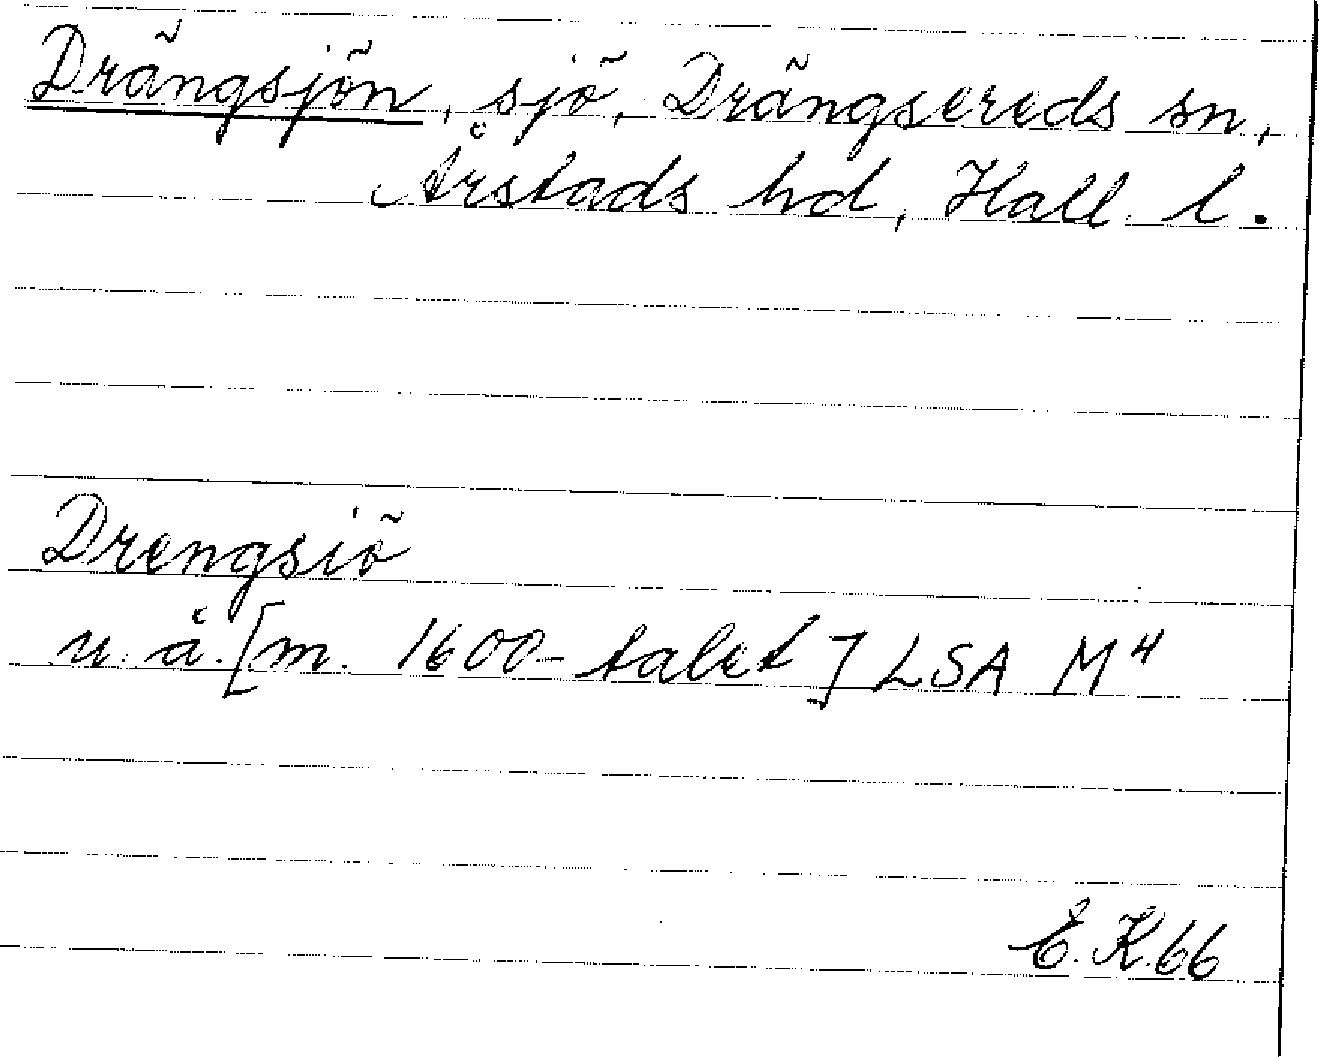 Drängsjön, sjö, Drängsereds sn,
Årstads hd, Hall. l.
Drengsiö
u. å. [m. 1600-talet] LSA M⁴
E.K.66